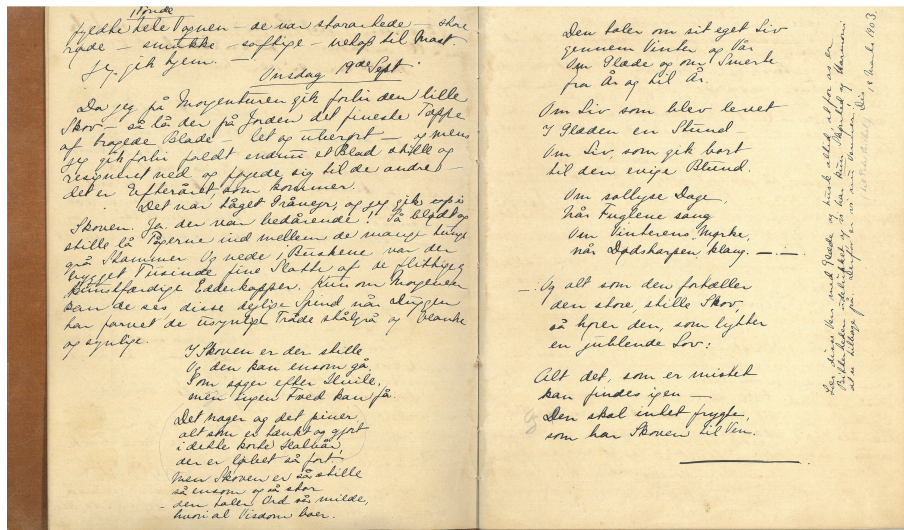 fyldte hele Vognen – de var storartede – store
røde – smukke – saftige – netop til Mast.
Jeg gik hjem. –
Onsdag 19de Sept.
Da jeg på Morgenturen gik forbi den lille
Skov – så lå der på Jorden det fineste Tæppe
af brogede Blade – let og uberørt – og mens
jeg gik forbi faldt endnu et Blad stille og
resigneret ned og føjede sig til de andre –
det er Efteråret som kommer.
Det var tåget Gråvejr, og jeg gik op i
Skoven. Ja, der var bedårende! Så blødt og
stille lå Tågerne ind mellem de mange tunge
grå Stammer Og nede i Buskene var der
bygget Tusinde fine Slotte af de flittige
kunstfærdige Edderkopper. Kun om Morgenen
kan de ses disse dejlige Spind når Duggen
har farvet de usynlige Tråde stålgrå og blanke
og synlige.
I Skoven er der stille
Og den kan ensom gå,
Som søger efter Hvile,
men ingen Fred kan få.
Det nager og det piner
alt som er tænkt og gjort
i dette korte Halvår,
der er løbet så fort!
Men Skoven er så stille
så ensom og så stor
– den taler Ord så milde,
hvori al Visdom bor.
Den taler om sit eget Liv
gennem Vinter og Vår
Om Glæde og om Smerte
fra År og til År.
Om Liv som blev levet
I Glæden en Stund –
Om Liv, som gik bort
til den evige Blund.
Om sollyse Dage,
når Fuglene sang
Om Vinterens Mørke,
når Dødsharpen klang. – . –
– . Og alt som den fortæller
den store, stille Skov,
så hører den, som lytter
en jublende Lov:
Alt det, som er mistet
kan findes igen –
Den skal intet frygte,
som har Skoven til Ven.
Læs disse Vers med Glæde og husk altid, at for os er
Bitterheden udelukket, og vi har kun Skønhed og Harmoni
at se tilbage på. Derfor er vi nu Venner